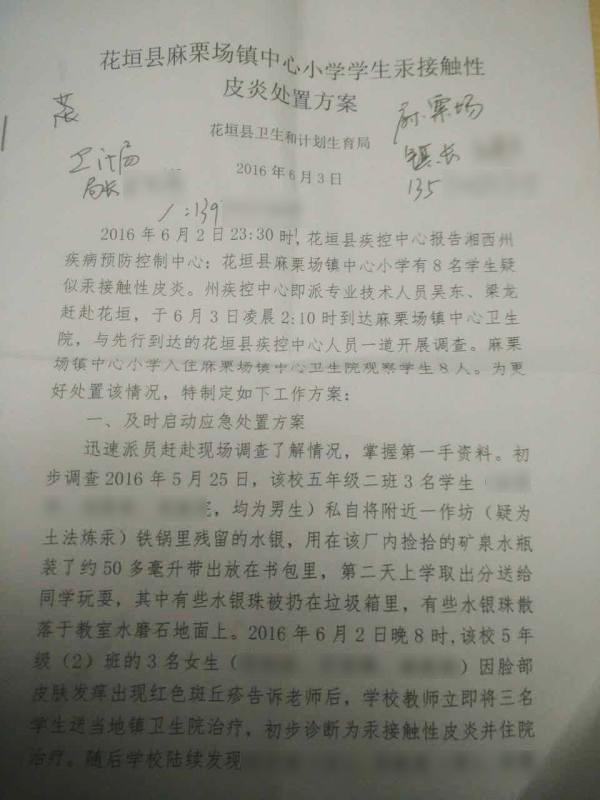 花垣县麻栗场镇中心小学学生汞接触性
皮炎处置方案
麻栗场
镇长
135
花垣县卫生和计划生育局
卫计局
局长
2016年6月3日
139
2016年6月2日23:30时,花垣县疾控中心报告湘西州
疾病预防控制中心:花垣县麻栗场镇中心小学有8名学生疑
似汞接触性皮炎。州疾控中心即派专业技术人员吴东、梁龙
赶赴花垣，于6月3日凌晨2:10时到达麻栗场镇中心卫生
院，与先行到达的花垣县疾控中心人员一道开展调查。麻栗
场镇中心小学入住麻栗场镇中心卫生院观察学生8人。为更
好处置该情况，特制定如下工作方案：
一、及时启动应急处置方案
迅速派员赶赴现场调查了解情况，掌握第一手资料。初
步调查2016年5月25日，该校五年级二班3名学生（
，均为男生）私自将附近一作坊（疑为
土法炼汞）铁锅里残留的水银，用在该厂内捡拾的矿泉水瓶
装了约50多毫升带出放在书包里，第二天上学取出分送给
同学玩耍，其中有些水银珠被扔在垃圾箱里，有些水银珠散
落于教室水磨石地面上。2016年6月2日晚8时,该校5年
级（2）班的3名女生（ ）因脸部
皮肤发痒出现红色斑丘疹告诉老师后，学校教师立即将三名
学生送当地镇卫生院治疗，初步诊断为汞接触性皮炎并住院
治疗。随后学校陆续发现